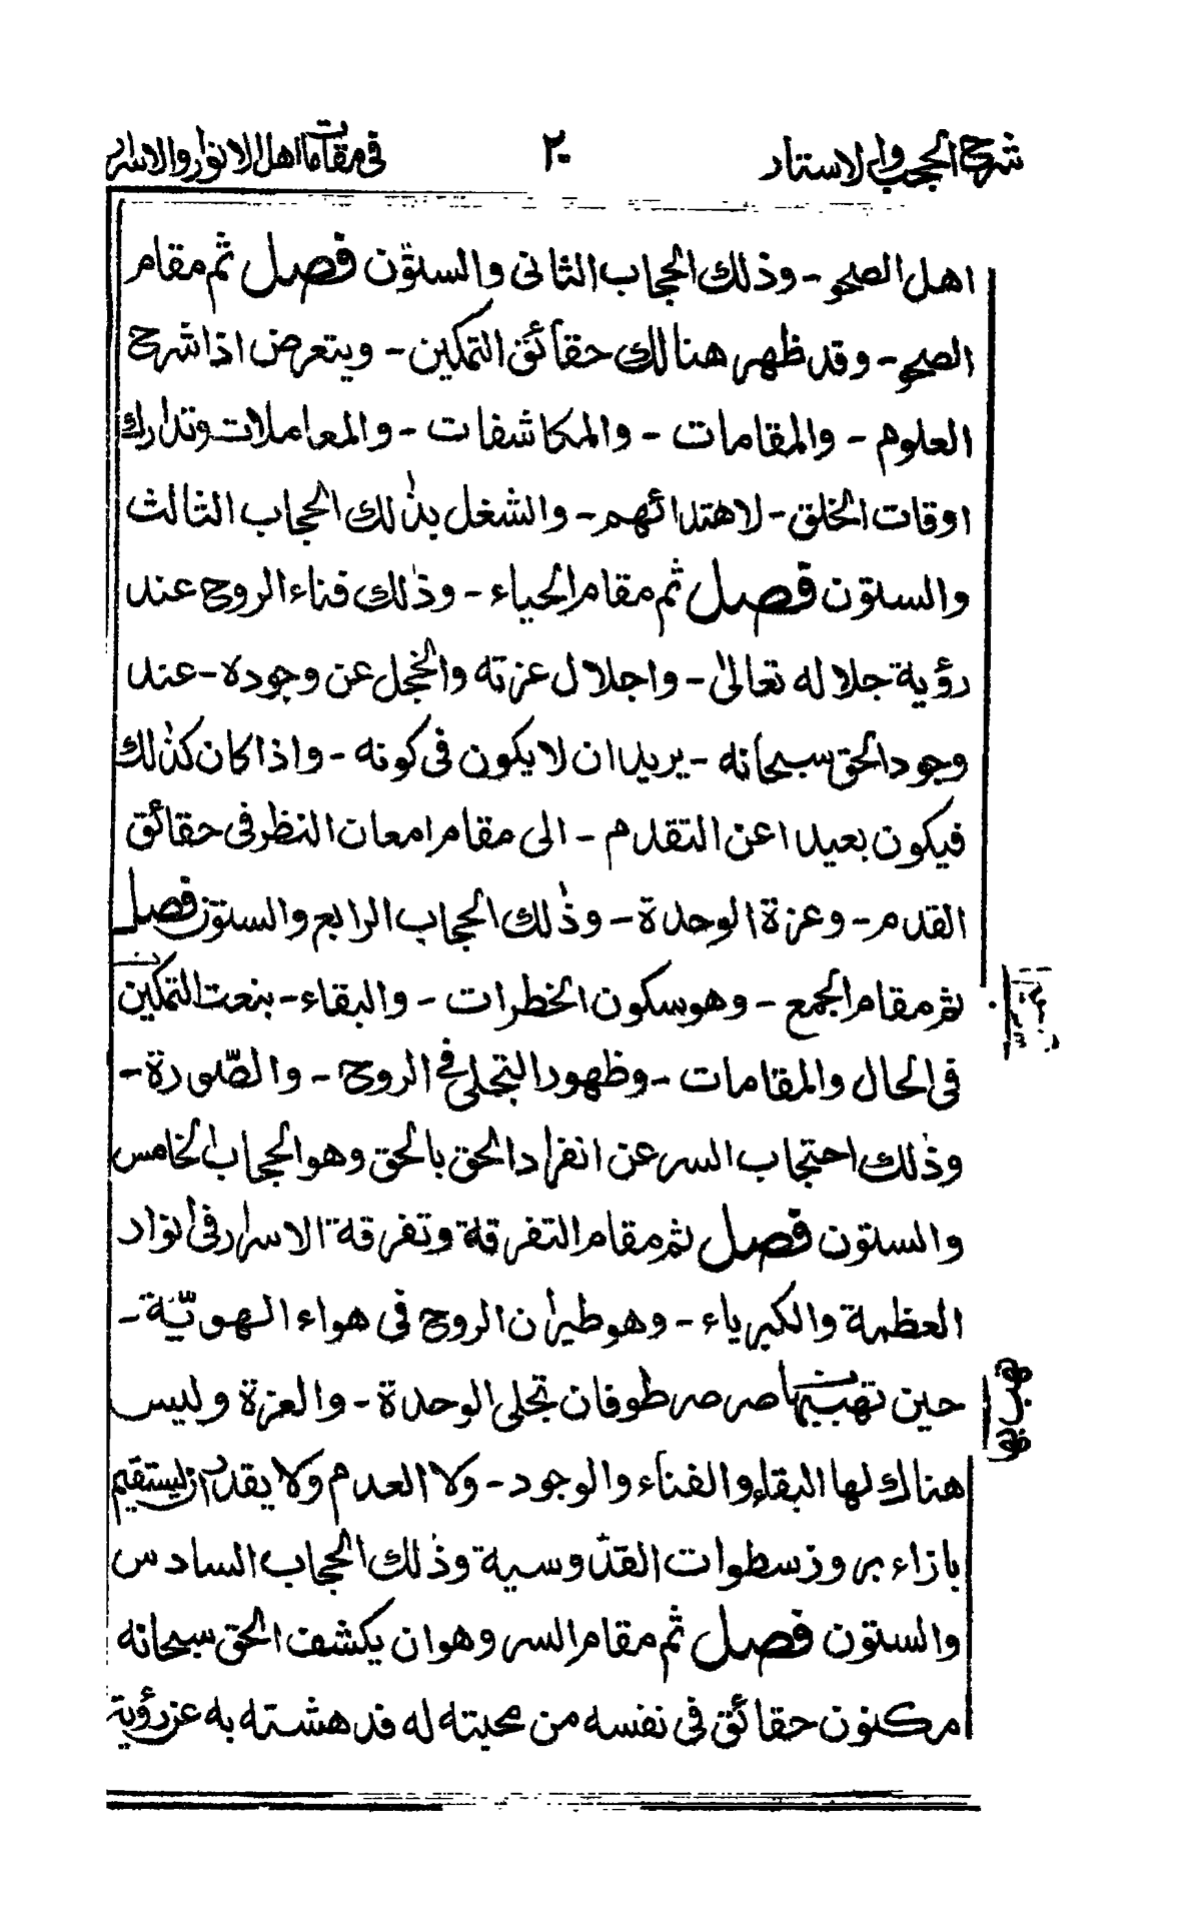 شرح الحجب والاستار
٢٠
فى مقامات اهل الانوار والاسرار
اهل الصحو - وذلك الحجاب الثانى والستون فصل ثم مقام
الصحو - وقد ظهر هنالك حقائق التمكين - ويتعرض اذا شرح
العلوم - والمقامات - والمكاشفات - والمعاملات وتدارك
اوقات الخلق - لاهتدائهم - والشغل بذلك الحجاب الثالث
والستون فصل ثم مقام الحياء - وذلك فناء الروح عند
رؤية جلاله تعالى - واجلال عزته والخجل عن وجوده - عند
وجود الحق سبحانه - يريد ان لا يكون فى كونه - واذا كان كذلك
فيكون بعيدا عن التقدم - الى مقام امعان النظر فى حقائق
القدم - وعزة الوحدة - وذلك الحجاب الرابع والستون فصل
ثم مقام الجمع - وهو سكون الخطرات - والبقاء - بنعت التمكين
فى الحال والمقامات - وظهور التجلى فى الروح - والصّورة -
وذلك احتجاب السر عن انفراد الحق بالحق وهو الحجاب الخامس
والستون فصل ثم مقام التفرقة وتفرقة الاسرار فى انوار
العظمة والكبرياء - وهو طيران الروح فى هواء الهويّة -
حين تهب صرصر طوفان تجلى الوحدة - والعزة وليس
هناك لها البقاء والفناء والوجود - ولا العدم ولا يقدر ان يستقيم
بازاء بروز سطوات القدّوسية وذلك الحجاب السادس
والستون فصل ثم مقام السر وهو ان يكشف الحق سبحانه
مكنون حقائق فى نفسه من محبته له فدهشته به عن رؤية